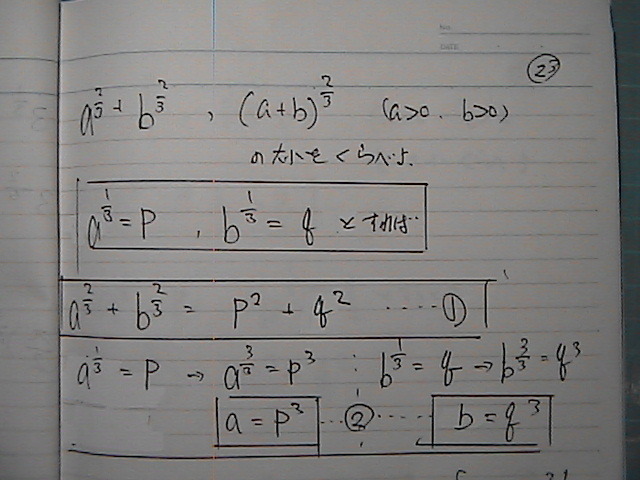 No.
DATE
㉓
a^{2/3} + b^{2/3} , (a+b)^{2/3} (a>0. b>0)
の大小をくらべよ.
a^{1/3} = P , b^{1/3} = q とすれば‥
a^{2/3} + b^{2/3} = P² + q² ‥‥‥①
a^{1/3} = P → a^{3/3} = P³ : b^{1/3} = q → b^{3/3} = q³
a = P³ ‥‥②‥‥ b = q³